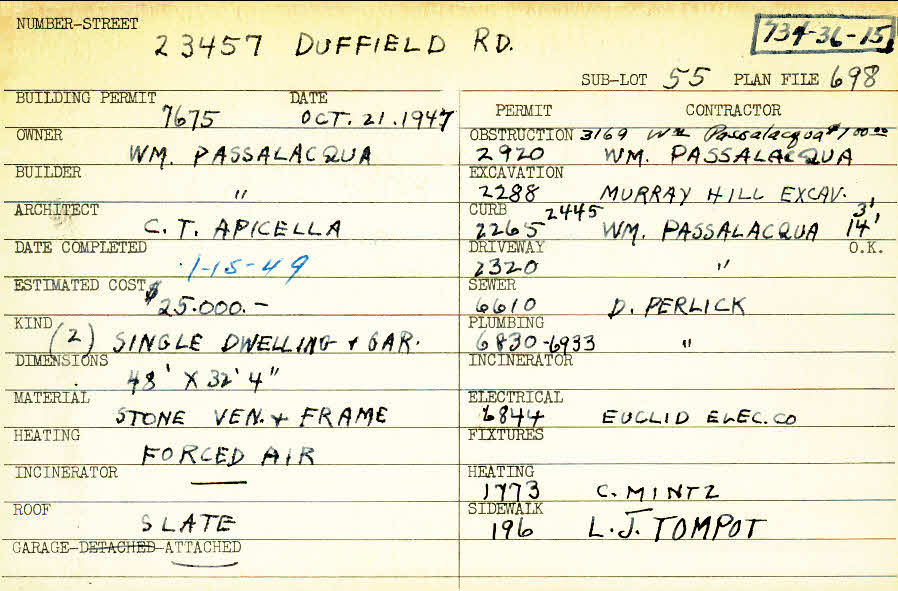 NUMBER-STREET
23457 DUFFIELD RD.
734-36-15
SUB-LOT 55 PLAN FILE 698
BUILDING PERMIT DATE
7675 OCT. 21.1947
OWNER
WM. PASSALACQUA
BUILDER
"
ARCHITECT
C. T. APICELLA
DATE COMPLETED
1-15-49
ESTIMATED COST
$25.000.-
KIND
(2) SINGLE DWELLING + GAR.
DIMENSIONS
48' X 32' 4"
MATERIAL
STONE VEN. + FRAME
HEATING
FORCED AIR
INCINERATOR
—
ROOF
SLATE
GARAGE-DETACHED-ATTACHED
PERMIT CONTRACTOR
OBSTRUCTION 3169 Wm Passalacqua $100.00
2920 WM. PASSALACQUA
EXCAVATION
2288 MURRAY HILL EXCAV.
CURB 2445 3'
2265 WM. PASSALACQUA 14'
DRIVEWAY O.K.
2320 "
SEWER
6610 D. PERLICK
PLUMBING
6830-6933 "
INCINERATOR
ELECTRICAL
6844 EUCLID ELEC. CO
FIXTURES
HEATING
1773 C. MINTZ
SIDEWALK
196 L. J. TOMPOT